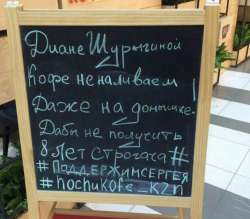 Диане Шурыгиной
Кофе не наливаем!
Даже на донышке.
Дабы не получить
8 лет строгача #
#ПОДДЕРЖИМСЕРГЕЯ
#hochukofe_kzn